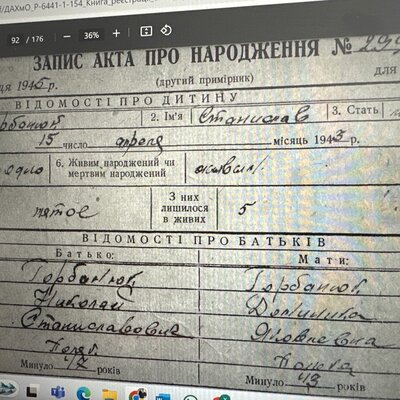 ДАХмО_Р-6441-1-154_Книга_реєстрації_
92 / 176 — 36% +
ЗАПИС АКТА ПРО НАРОДЖЕННЯ №
ця 1945 р. (другий примірник) для
ВІДОМОСТІ ПРО ДИТИНУ
рбанюк 2. Ім'я Станислав 3. Стать
15 число апреля місяць 1945 р.
одно 6. Живим народжений чи мертвим народжений живым
пятое З них лишилося в живих 5
ВІДОМОСТІ ПРО БАТЬКІВ
Батько: Мати:
Горбанюк Горбанюк
Николай Доминика
Станиславовна Яковлевна
Поляк Полька
Минуло 42 років Минуло 43 років